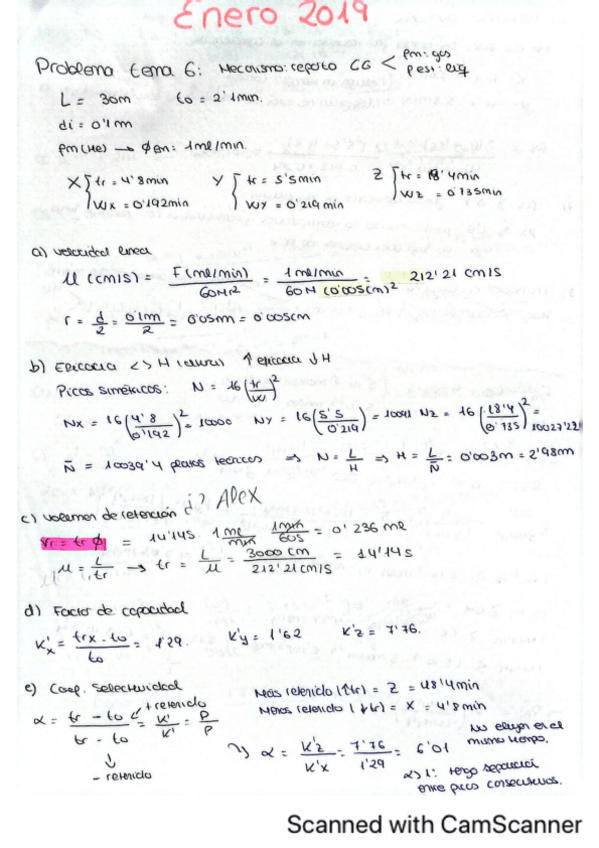 Enero 2019
Problema tema 6: Mecanismo: reparto CG < fm: gas
fest: liq
L = 30m   to = 2'1min.
di = 0'1 m
fm (He) → Φ en: 1 ml/min.
X { tr = 4'8 min   Y { tr = 5'5 min   Z { tr = 18'4 min
Wx = 0'192 min   WY = 0'219 min   Wz = 0'735 min
a) velocidad lineal
μ (cm/s) = F (ml/min) / 60πr² = 1 ml/min / 60π (0'005cm)² = 212'21 cm/s
r = d/2 = 0'1m/2 = 0'05m = 0'005cm
b) Eficacia <> H (altura) ↑ eficacia ↓ H
Picos simétricos: N = 16 (tr/W)²
Nx = 16 (4'8/0'192)² = 10000   NY = 16 (5'5/0'219)² = 10091   Nz = 16 (18'4/0'735)² = 10027'22
N̄ = 10039'4 platos teóricos ⇒ N = L/H ⇒ H = L/N̄ = 0'003m = 2'98m
c) volumen de retención ¿? Alex
Vr = tr Φ = 14'14s. 1 ml/min 1min/60s = 0'236 ml
μ = L/tr → tr = L/μ = 3000 cm / 212'21 cm/s = 14'14 s
d) Factor de capacidad
K'x = trx - to / to = 1'29.   K'y = 1'62   K'z = 7'76.
e) Coef. Selectividad
Más retenido (↑tr) = Z = 18'4 min
Menos retenido (↓tr) = X = 4'8 min
+ retenido
α = tr - to / tr - to = K'/K' = P/P
- retenido
α = K'z / K'x = 7'76 / 1'29 = 6'01
No eluyen en el
mismo tiempo.
α > 1: tengo separación
entre picos consecutivos.
Scanned with CamScanner